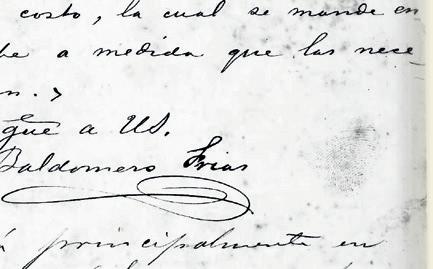 costo, la cual se mande en
a medida que las nece
n.>
gue a US.
Baldomero Frias
principalmente en